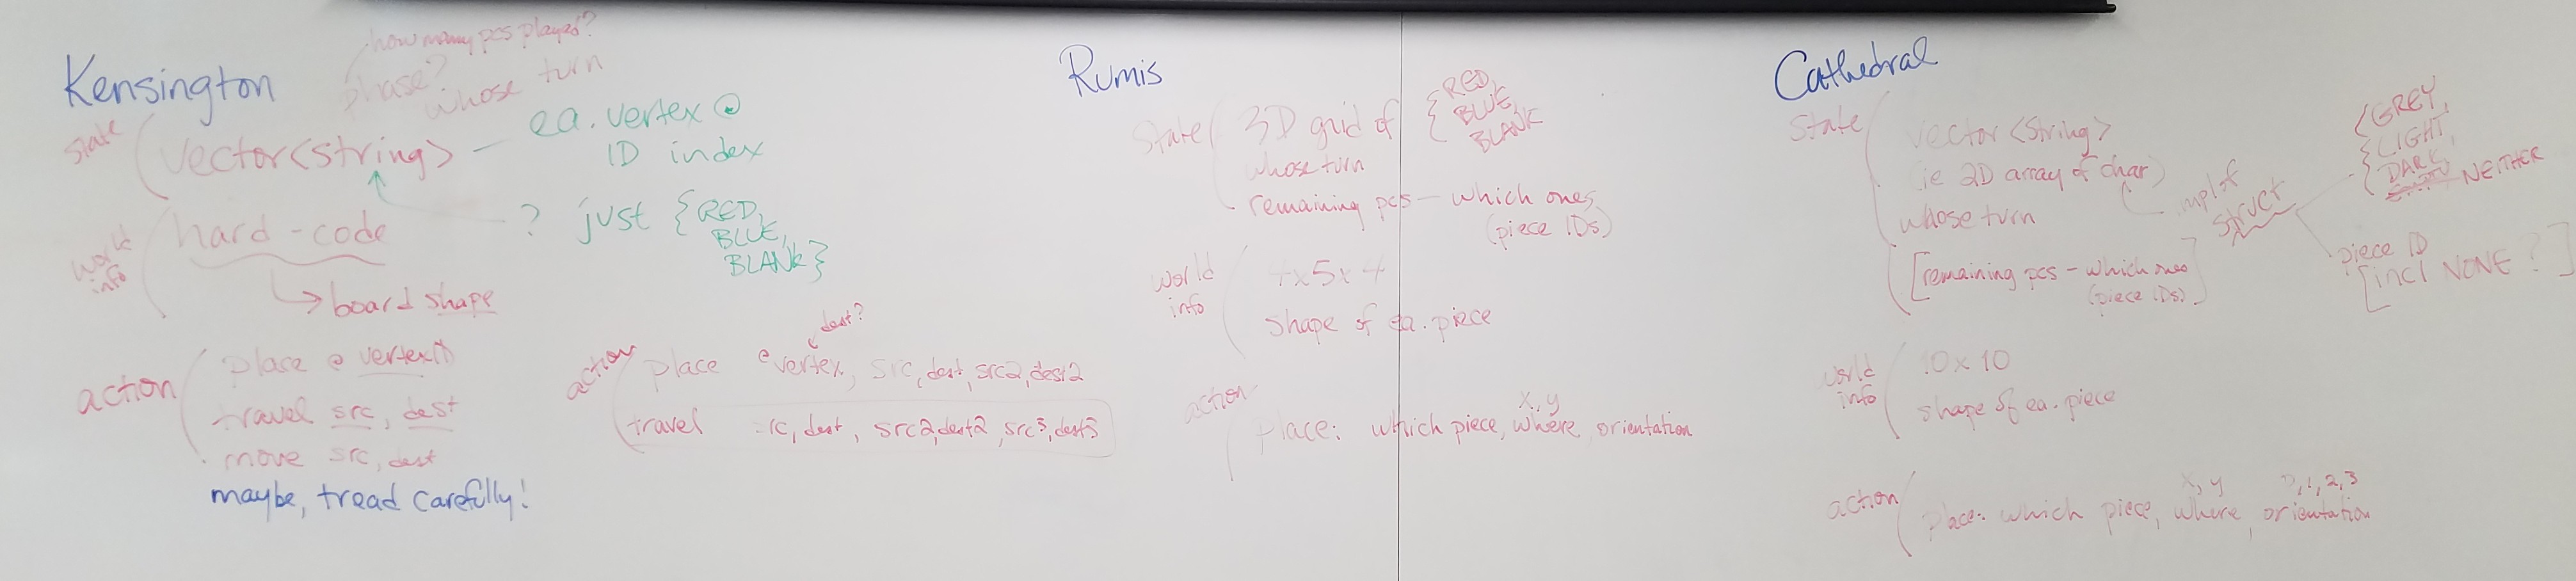 Kensington
how many pcs played?
phase?
whose turn
state
vector<string> — ea. vertex @
1D index
? just {RED,
BLUE,
BLANK}
world
info
hard-code
board shape
action
place @ vertex(1)
travel src, dest
move src, dest
maybe, tread carefully!
action
dest?
place @ vertex, src, dest, src2, dest2
travel src, dest, src2, dest2, src3, dest3
Rumis
state
3D grid of {RED,
BLUE,
BLANK
whose turn
remaining pcs — which ones
(piece IDs)
world
info
4x5x4
shape of ea. piece
action
x, y
place: which piece, where, orientation
Cathedral
state
vector<string>
(ie 2D array of char)
impl of
struct
{GREY,
LIGHT,
DARK,
NEITHER
piece ID
[incl NONE?]
whose turn
[remaining pcs — which ones
(piece IDs)]
world
info
10x10
shape of ea. piece
action
x, y 0,1,2,3
place: which piece, where, orientation